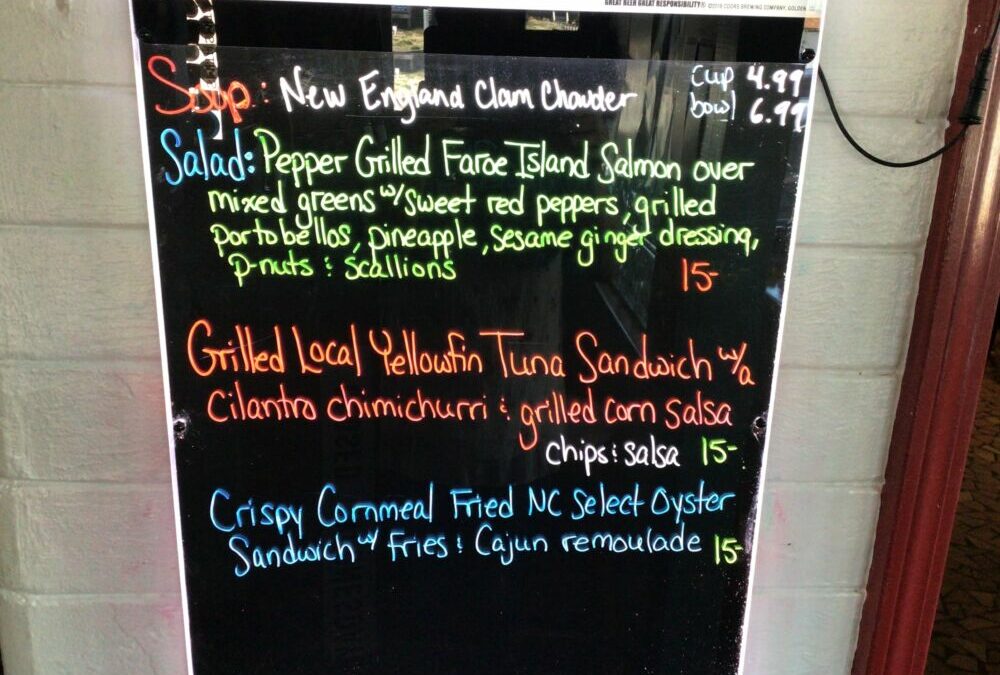 GREAT BEER GREAT RESPONSIBILITY® ©2019 COORS BREWING COMPANY, GOLDEN
Soup: New England Clam Chowder cup 4.99
bowl 6.99
Salad: Pepper Grilled Faroe Island Salmon over
mixed greens w/ sweet red peppers, grilled
portobellos, pineapple, sesame ginger dressing,
p-nuts & scallions 15-
Grilled Local Yellowfin Tuna Sandwich w/a
cilantro chimichurri & grilled corn salsa
chips & salsa 15-
Crispy Cornmeal Fried NC Select Oyster
Sandwich w/ Fries & Cajun remoulade 15-